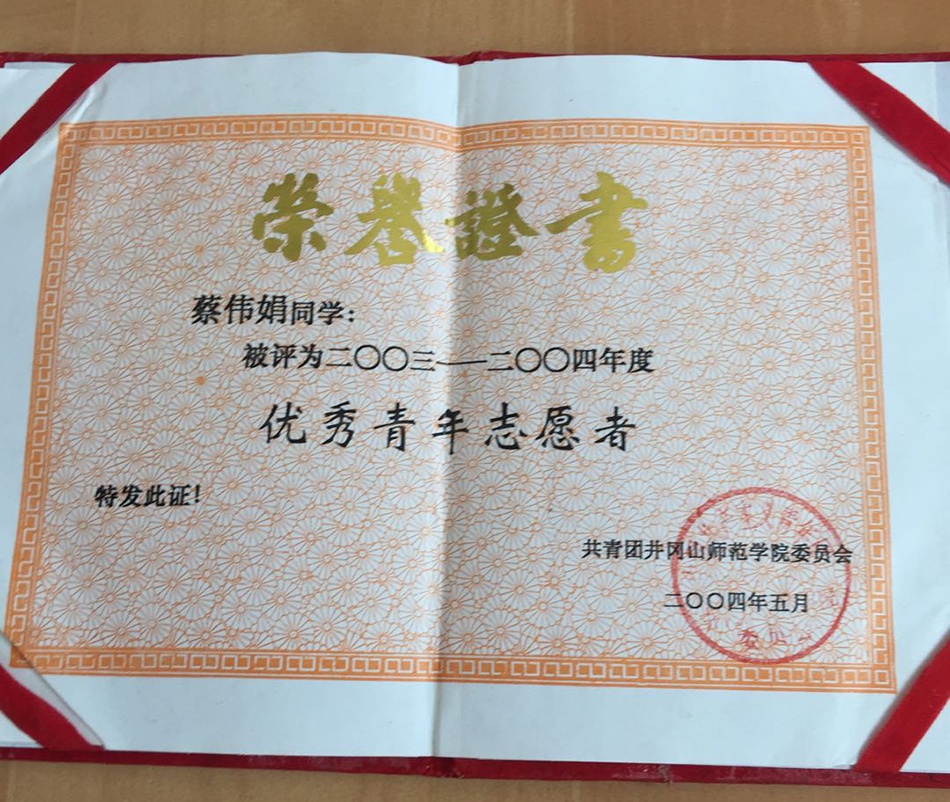 榮譽證書
蔡伟娟同学：
被评为二〇〇三——二〇〇四年度
优秀青年志愿者
特发此证！
共青团井冈山师范学院委员会
二〇〇四年五月
委员会